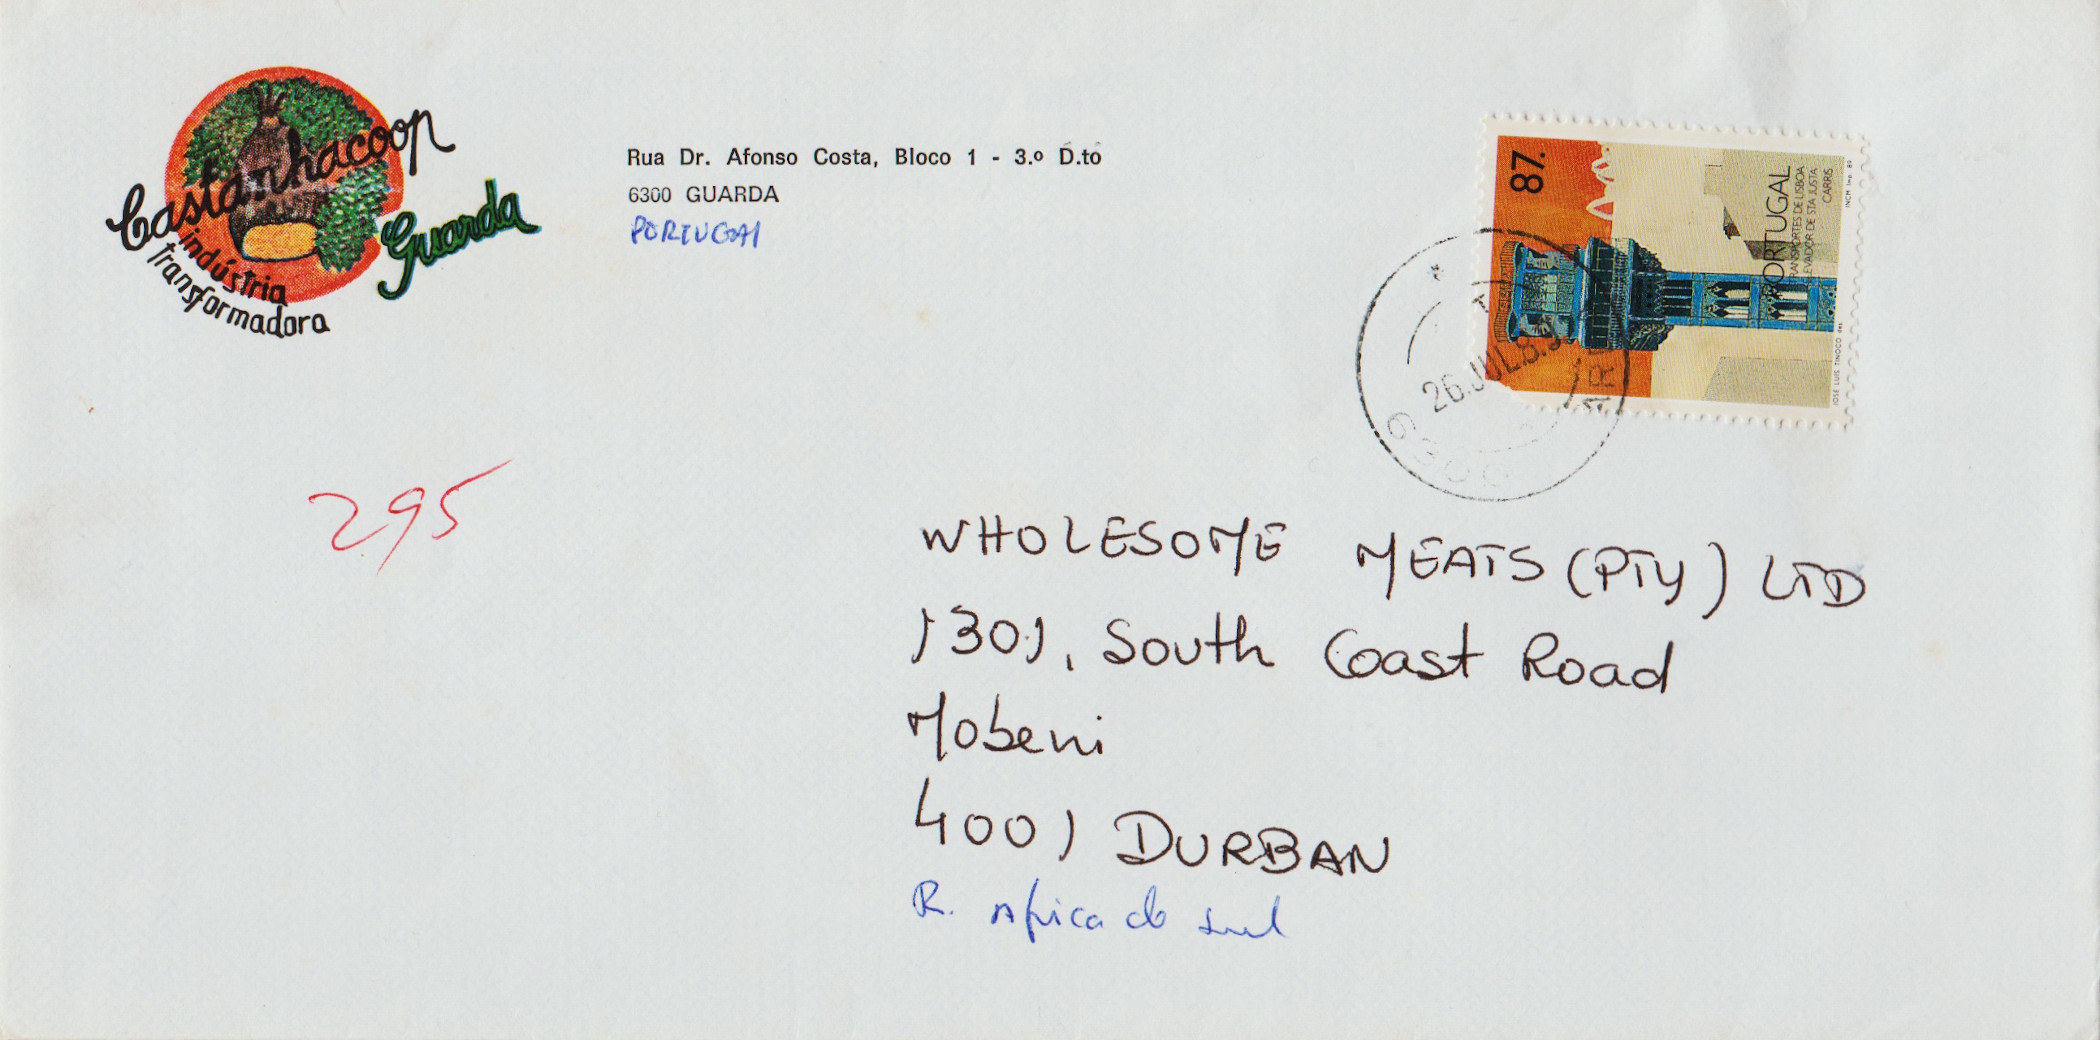 Castanhacoop
Guarda
indústria
transformadora
Rua Dr. Afonso Costa, Bloco 1 - 3.º D.to
6300 GUARDA
PORTUGAL
87.
PORTUGAL
TRANSPORTES DE LISBOA
ELEVADOR DE STA JUSTA
CARRIS
INCM Imp. 89
JOSÉ LUIS TINOCO des.
26.JUL.8.9
6300
295
WHOLESOME MEATS (PTY) LTD
1301, South Coast Road
Mobeni
4001 DURBAN
R. Africa do Sul